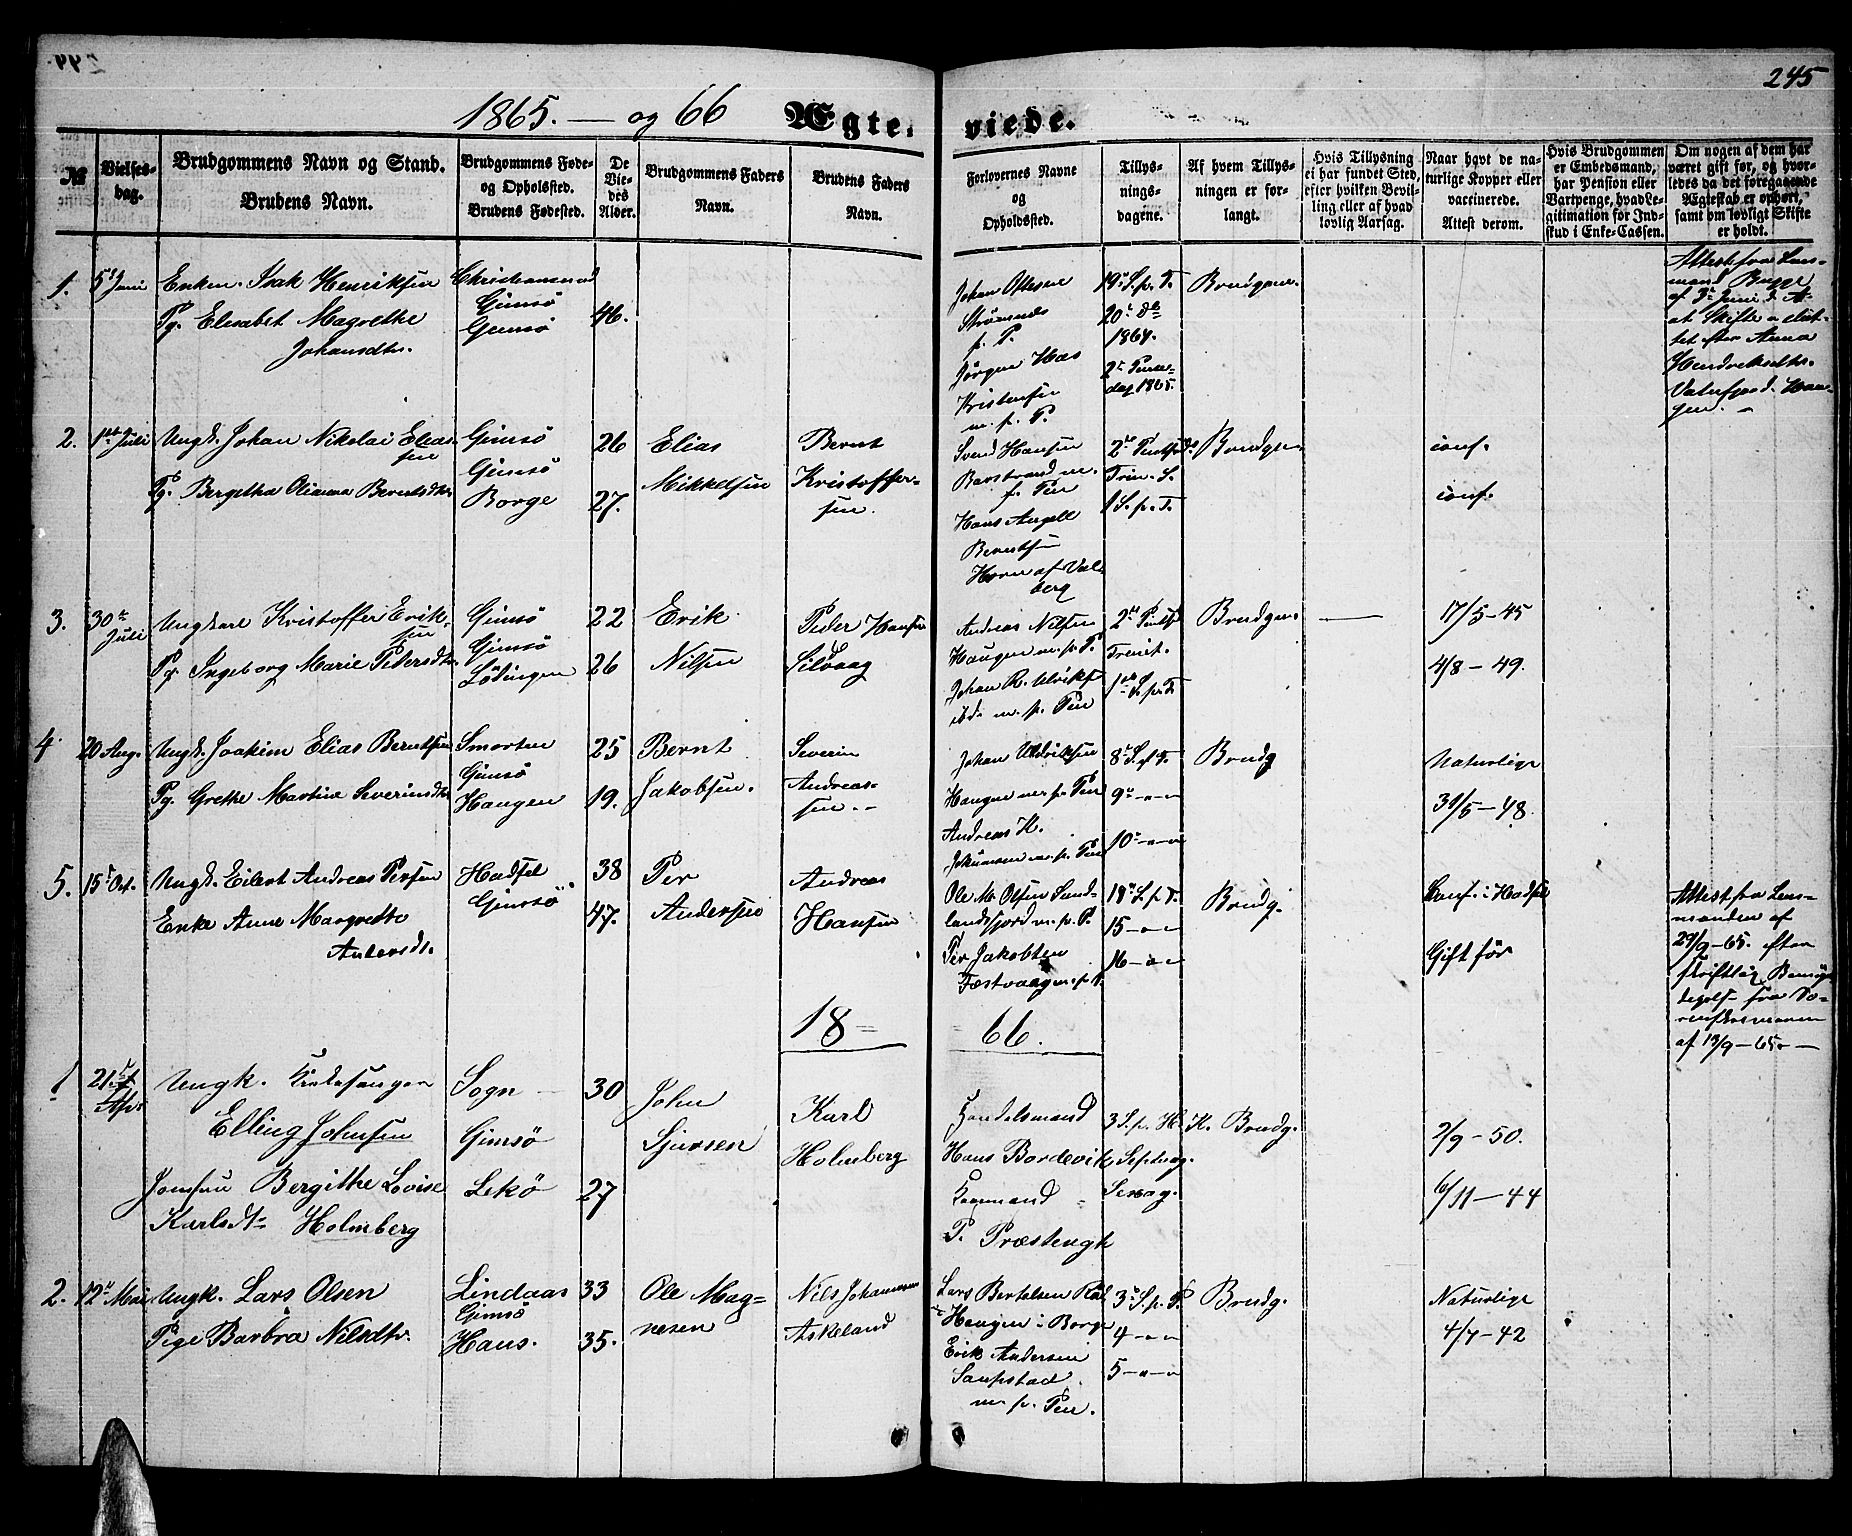 245
1865. — og 66 Ægte. viede.
№
Vielses-
dag.
Brudgommens Navn og Stand.
Brudens Navn.
Brudgommens Føde-
og Opholdsted.
Brudens Fødested.
De
Vie-
des
Alder.
Brudgommens Faders
Navn.
Brudens Faders
Navn.
Forlovernes Navne
og
Opholdsted.
Tillys-
nings-
dagene.
Af hvem Tillys-
ningen er for-
langt.
Hvis Tillysning
ei har fundet Sted,
efter hvilken Bevil-
ling eller af hvad
lovlig Aarsag.
Naar havt de na-
turlige Kopper eller
vaccinerede.
Attest derom.
Hvis Brudgommen
er Embedsmand,
har Pension eller
Vartpenge, hvad Le-
gitimation for Ind-
skud i Enke-Cassen.
Om nogen af dem har
været gift før, og hvor-
ledes da det foregaaende
Ægteskab er ophørt,
samt om lovligt Skifte
er holdt.
1. 5te Juni
Enkem. Isak Henriksen
Pg. Elisabet Magrethe
Johansdtr.
Christiansund
Gimsö
Gimsö
46.
Johan Ottesen
Strømnes
p. P.
Jörgen Haas
Kristensen
m. p. P.
19de S. p. T.
20de do
1864.
2den Pintse-
dag 1865.
Brudgom.
Attest fra Lens-
mand Bugge
af 3de Juni d. A.
at Skifte er slut-
tet efter Anna
Hendriksdtr.
Vatnfjord. Hau-
gen. —
2. 1ste Juli
Ungk. Johan Nikolai Elias-
sen
Pg. Bergitha Olianna Berntsdtr.
Gimsö
Gimsö
Borge
26
27.
Elias
Mikkelsen
Bernt
Kristoffer-
sen.
Svend Hansen
Barstrand m.
p. Pen
Hans Angell
Berntsen
Horn af Val-
berg
2den Pintsed.
Trin. S.
1 S. p. T.
Brudgom
conf.
conf.
3. 30te
Juli
Ungkarl Kristoffer Erik-
sen
Pg. Ingeborg Marie Pedersdtr.
Gimsö
Gimsö
Lödingen
22
26
Erik
Nilsen
Peder Hansen
Silvaag
Andreas Nilsen
Haugen m. p. P.
Johan R. Ulriks
ibd. m. p. Pen
2den Pintsed
Trinit.
1ste S. p. T.
Brudgom.
17/5 - 45
4/8 - 49.
4 20 Aug.
Ungk. Joakim Elias Berntsen
Pg. Grethe Martine Severinsdtr
Smorten
Gimsö
Haugen
25
19.
Bernt
Jakobsen.
Severin
Andreas-
sen. -
Johan Uldriksen
Haugen m. p. Pen
Andreas K.
Jokumsen m. p. Pen
8de S. p. T.
9de - „ - „
10 - „ - „
Brudg
Naturlige
31/5 - 48.
5. 15de Oct.
Ungk. Eilert Andreas Persen
Enke Anne Margrethe
Andersdt.
Hadsel
Gimsö
38
47.
Per
Andersen
Andreas
Hansen
Ole M. Olsen Sund-
landsfjord m. p. P.
Per Jakobsen
Festvaagen p. P.
18de S. p. T.
15 - „ -
16 - „ -
Brudg.
Conf. i Hadsel
Gift før
Attest fra Lens-
manden af
29/9 - 65. efter
skriftlig Bemyn-
digelse fra So-
renskriveren
af 19/9 - 65 —
18 66.
1 21de
Apr
Ungk. Kirkesanger
Elling Johnsen
Jomfru Bergithe Lovise
Karlsdtr Holmberg
Sogn
Gimsö
Lekö
30
27
John
Sjursen
Karl
Holmberg
Handelsmand
Hans Bordevik
Lensmand
P. Præstengh
3 S. p. H. K.
Septuag.
Sexag.
Brudg.
2/9 - 50.
6/11 - 44
2. 12te Mai
Ungk. Lars Olsen
Pige Barbra Nilsdtr.
Lindaas
Gimsö
Haus.
33
35.
Ole Mag-
nesen
Nils Johannesen
Askeland
Lars Bertelsen Kal
Haugen i Borge
Erik Andersen
Saupstad
m. p. Pen.
3de S. p. P.
4 - „ - „
5 - „ - „
Brudg.
Naturlige
4/7 - 42